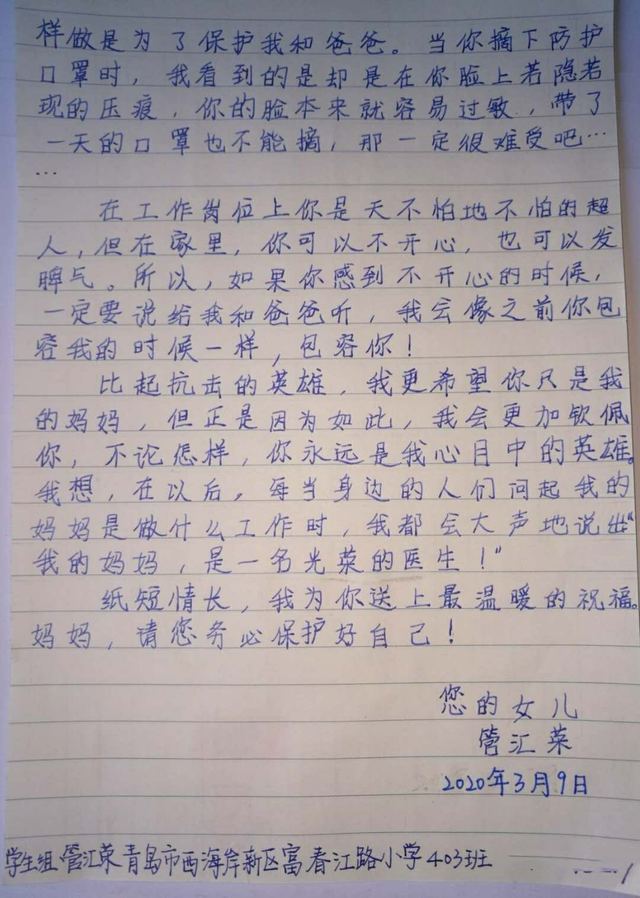 样做是为了保护我和爸爸。当你摘下防护
口罩时，我看到的是却是在你脸上若隐若
现的压痕，你的脸本来就容易过敏，带了
一天的口罩也不能摘，那一定很难受吧…
…
在工作岗位上你是天不怕地不怕的超
人，但在家里，你可以不开心，也可以发
脾气。所以，如果你感到不开心的时候，
一定要说给我和爸爸听，我会像之前你包
容我的时候一样，包容你！
比起抗击的英雄，我更希望你只是我
的妈妈，但正是因为如此，我会更加钦佩
你，不论怎样，你永远是我心目中的英雄。
我想，在以后，每当身边的人们问起我的
妈妈是做什么工作时，我都会大声地说出“
我的妈妈，是一名光荣的医生！”
纸短情长，我为你送上最温暖的祝福。
妈妈，请您务必保护好自己！
您的女儿
管汇荣
2020年3月9日
学生组·管汇荣青岛市西海岸新区富春江路小学403班